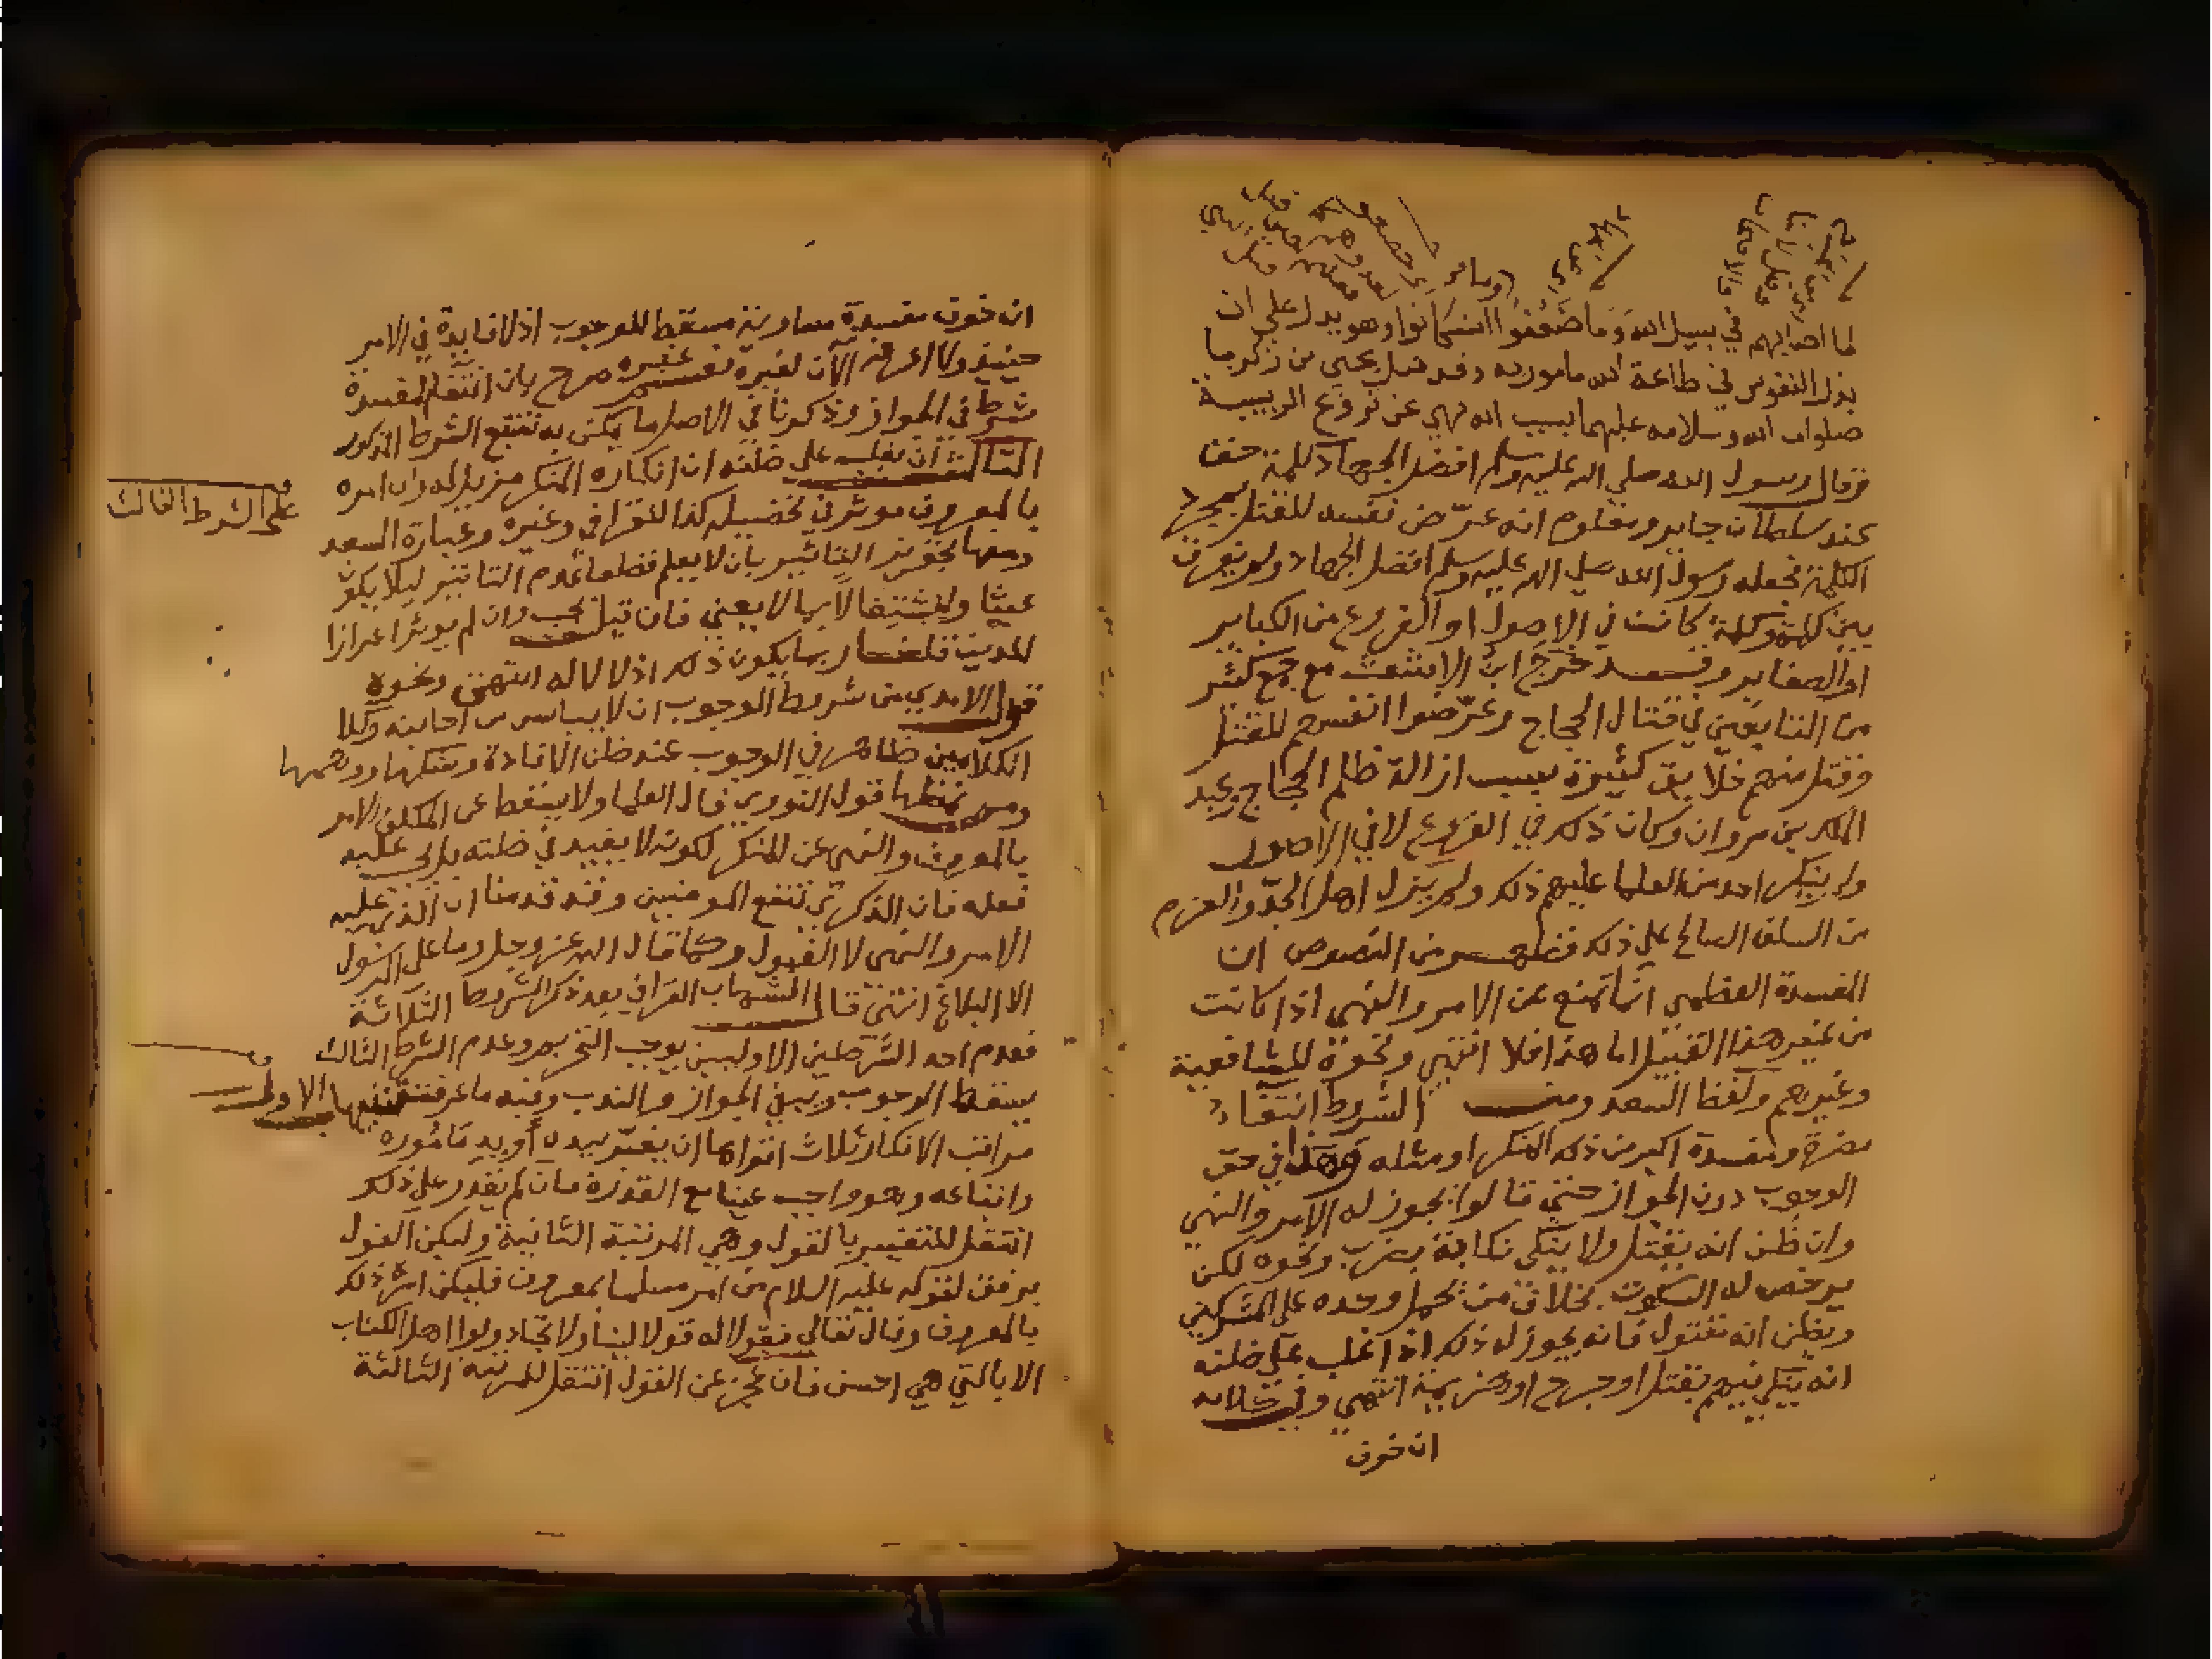 لما اصابهم في سبيل الله وما ضعفوا وما استكانوا وهو يدل على ان
بذل النفوس في طاعة الله مامور به وقد قتل يحيى بن زكريا
صلوات الله وسلامه عليهما بسبب انه نهى عن تزويج الربيبة
وقال رسول الله صلى الله عليه وسلم افضل الجهاد كلمة حق
عند سلطان جاير ومعلوم انه عرّض نفسه للقتل بمجرد
الكلمة فجعله رسول الله صلى الله عليه وسلم افضل الجهاد ولم يفرق
بين كلمة وكلمة كانت في الاصول او الفروع من الكباير
او الصغاير وقد خرج ابن الاشعث مع جمع كثير
من التابعين في قتال الحجاج وعرّضوا انفسهم للقتل
وقتل منهم خلايق كثيرة بسبب ازالة ظلم الحجاج وعبد
الملك بن مروان وكان ذلك في الفروع لا في الاصول
ولم ينكر احد من العلما عليهم ذلك ولم يزل اهل الجدّ والعزم
من السلف الصالح على ذلك فظهر من النصوص ان
المفسدة العظمى انما تمنع من الامر والنهي اذا كانت
من غير هذا القبيل اما هذا فلا انتهى ونحوه للشافعية
وغيرهم ولفظ السعد ومن الشروط انتفاء
مضرة ومفسدة اكبر من ذلك المنكر او مثله وهذا في حق
الوجوب دون الجواز حتى قالوا يجوز له الامر والنهي
وان ظن انه يقتل ولا ينكى نكاية بضرب ونحوه لكن
يرخص له السكوت بخلاف من يحمل وحده على المشركين
ويظن انه يقتل فانه يجوز له ذلك اذا غلب على ظنه
انه ينكي فيهم بقتل او جرح او هزيمة انتهى وفي كلامه
ان خوف
ان خوف مفسدة مساوية مسقط للوجوب اذ لا فايدة في الامر
حينيذ ولا اعرفه الآن لغيره نعم غيره صرح بان انتفا المفسدة
شرط في الجواز وذكرنا في الاصل ما يمكن به تتبع الشرط المذكور
الثالث ان يغلب على ظنه ان انكاره المنكر مزيل له وان امره
بالمعروف موثر في تحصيله كذا للقرافي وغيره وعبارة السعد
ومنها تجويز التاثير بان لا يعلم قطعا عدم التاثير ليلا يكون
عبثا واشتغالا بما لا يعني فان قيل يجب وان لم يوثر اعزازا
للدين قلنا ربما يكون ذلك اذلالا له انتهى ونحوه
قول الامدي من شروط الوجوب ان لا يياس من اجابته وكلا
الكلامين ظاهر في الوجوب عند ظن الافادة وشكها ووهمها
قول النووي قال العلما ولا يسقط عن المكلف الامر
بالمعروف والنهي عن المنكر لكونه لا يفيد في ظنه بل يجب عليه
فعله فان الذكرى تنفع المومنين وقد قدمنا ان الذي عليه
الامر والنهي لا القبول وكما قال الله عز وجل وما على الرسول
الا البلاغ انتهى قال الشهاب القرافي بعد ذكر الشروط الثلاثة
فعدم احد الشرطين الاولين يوجب التحريم وعدم الشرط الثالث
يسقط الوجوب ويبقي الجواز والندب وفيه ما عرفته تنبيها الاول
مراتب الانكار ثلاث اقواها ان يغير بيده او يد ماموره
واتباعه وهو واجب عينا مع القدرة فان لم يقدر على ذلك
انتقل للتغيير بالقول وهي المرتبة الثانية وليكن القول
برفق لقوله عليه السلام من امر مسلما بمعروف فليكن امره ذلك
بالمعروف وقال تعالى فقولا له قولا لينا ولا تجادلوا اهل الكتاب
الا بالتي هي احسن فان عجز عن القول انتقل للمرتبة الثالثة
على الشرط الثالث